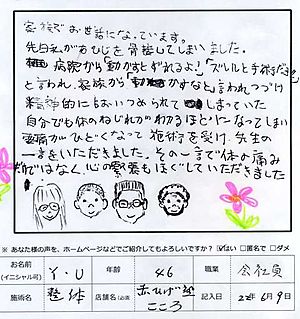 家族でお世話になっています。
先日私がすねじを骨接してしまいました。
病院から「動かすとずれるよ」「ズレルと手術だ
と言われ、家族から「動かすな」と言われつづけ
精神的においつめられてしまっていた
自分でも体のねじれがわかるほどになってしまい
頭痛がひどくなって施術を受け、先生の
一言をいただきました。その一言で体の痛み
だけではなく、心の緊張もほぐしていただきました
※ あなた様の声を、ホームページなどでご紹介してもよろしいですか? はい □匿名で □ダメ
お名前 (イニシャル可) Y・U 年齢 46 職業 会社員
施術名 整体 店舗名 赤ひげ堂 こころ 記入日 22年6月9日